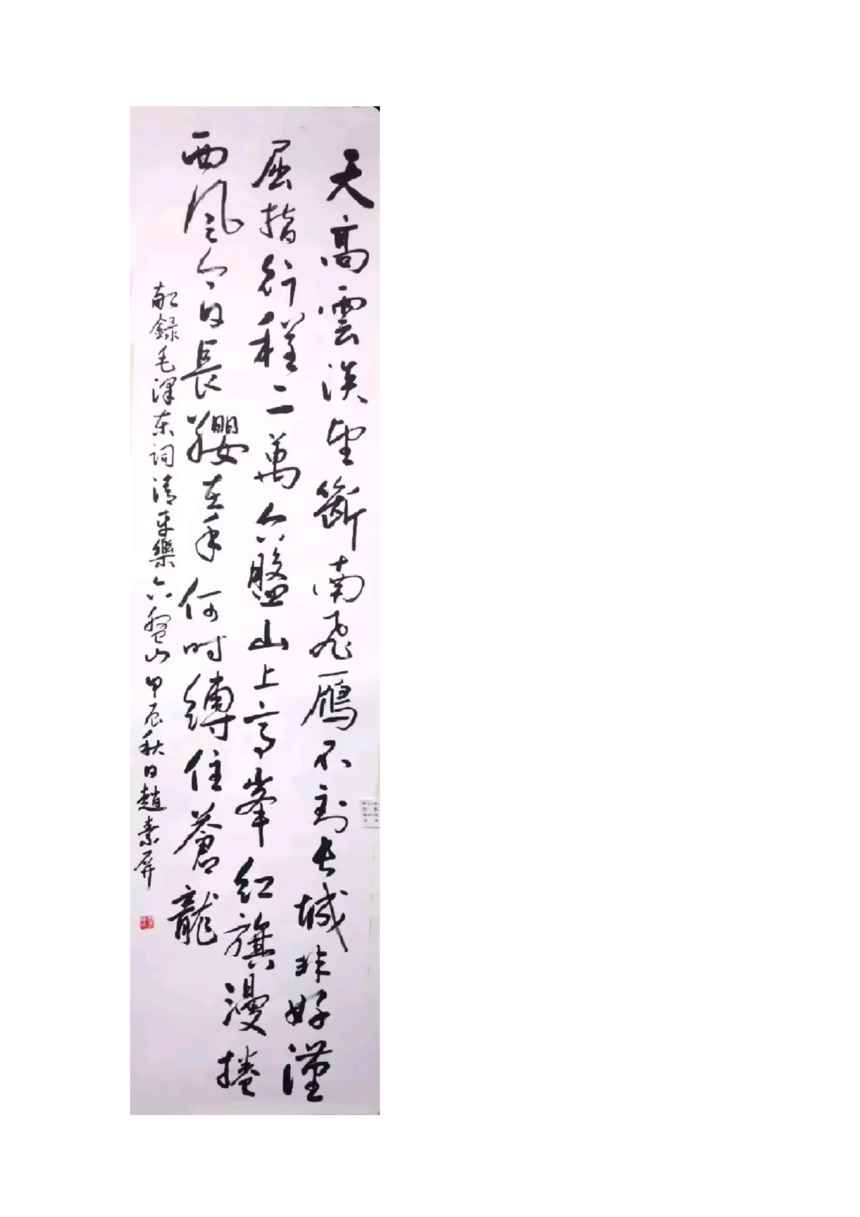 天高雲淡望斷南飛雁不到長城非好漢
屈指行程二萬六盤山上高峯紅旗漫捲
西風今日長纓在手何時縛住蒼龍
敬錄毛澤东詞清平樂六盤山甲辰秋日趙素屏